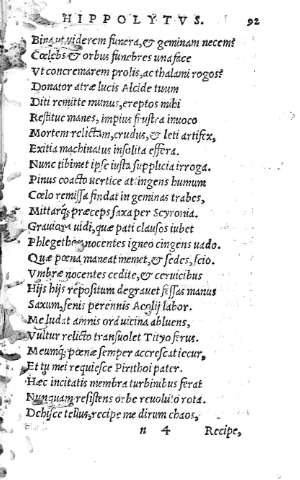 HIPPOLYTVS. 92
Bina ut uiderem funera, & geminam necem?
Cœlebs & orbus funebres una face
Vt concremarem prolis, ac thalami rogos?
Donator atræ lucis Alcide tuum
Diti remitte munus, ereptos mihi
Restitue manes, impius frustra inuoco
Mortem relictam, crudus, & leti artifex,
Exitia machinatus insolita effera.
Nunc tibimet ipse iusta supplicia irroga.
Pinus coacto uertice attingens humum
Cœlo remissa findat in geminas trabes,
Mittarq; præceps saxa per Scyronia.
Grauiora uidi, quæ pati clausos iubet
Phlegethon nocentes igneo cingens uado.
Quæ pœna maneat memet, & sedes, scio.
Vmbræ nocentes cedite, & ceruicibus
His his repositum degrauet fessas manus
Saxum, senis perennis Aeolij labor.
Me ludat amnis ora uicina abluens,
Vultur relicto transuolet Tityo ferus.
Meumq; pœnæ semper accrescat iecur,
Et tu mei requiesce Pirithoi pater.
Hæc incitatis membra turbinibus ferat
Nunquam resistens orbe reuoluto rota.
Dehisce tellus, recipe me dirum chaos,
n 4 Recipe,